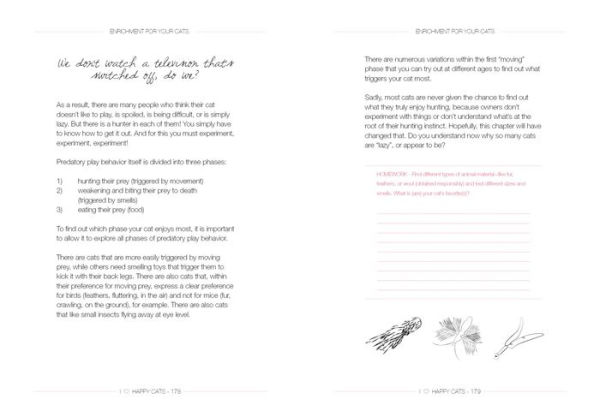 ENRICHMENT FOR YOUR CATS
We don't watch a television that's
switched off, do we?
As a result, there are many people who think their cat
doesn't like to play, is spoiled, is being difficult, or is simply
lazy. But there is a hunter in each of them! You simply have
to know how to get it out. And for this you must experiment,
experiment, experiment!
Predatory play behavior itself is divided into three phases:
1) hunting their prey (triggered by movement)
2) weakening and biting their prey to death
(triggered by smells)
3) eating their prey (food)
To find out which phase your cat enjoys most, it is important
to allow it to explore all phases of predatory play behavior.
There are cats that are more easily triggered by moving
prey, while others need smelling toys that trigger them to
kick it with their back legs. There are also cats that, within
their preference for moving prey, express a clear preference
for birds (feathers, fluttering, in the air) and not for mice (fur,
crawling, on the ground), for example. There are also cats
that like small insects flying away at eye level.
HAPPY CATS - 178
ENRICHMENT FOR YOUR CATS
There are numerous variations within the first "moving"
phase that you can try out at different ages to find out what
triggers your cat most.
Sadly, most cats are never given the chance to find out
what they truly enjoy hunting, because owners don't
experiment with things or don't understand what's at the
root of their hunting instinct. Hopefully, this chapter will have
changed that. Do you understand now why so many cats
are "lazy", or appear to be?
HOMEWORK - Find different types of animal material - like fur,
feathers, or wool (obtained responsibly) and test different sizes and
smells. What is (are) your cat's favorite(s)?
HAPPY CATS - 179